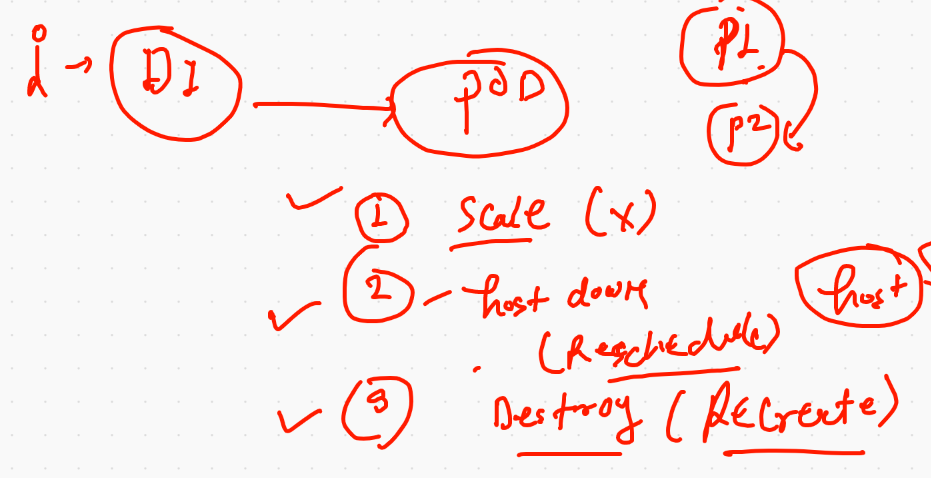 DI
POD
P1
P2
1 Scale (x)
2 - host down
(Reschedule)
host
3 Destroy (Recreate)